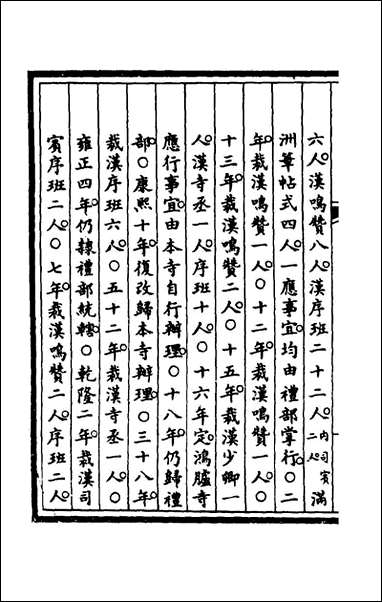 六人。漢鳴贊八人。漢序班二十二人。内司賓二人。滿
洲筆帖式四人。一應事宜。均由禮部掌行。○二
年。裁漢鳴贊一人。○十二年。裁漢鳴贊一人。○
十三年。裁漢鳴贊二人。○十五年。裁漢少卿一
人。漢寺丞一人。序班十人。○十六年。定。鴻臚寺
應行事宜。由本寺自行辦理。○十八年。仍歸禮
部。○康熙十年。復改歸本寺辦理。○三十八年。
裁漢序班六人。○五十二年。裁漢寺丞一人。○
雍正四年。仍隸禮部統轄。○乾隆二年。裁漢司
賓序班二人。○七年。裁漢鳴贊二人。序班二人。